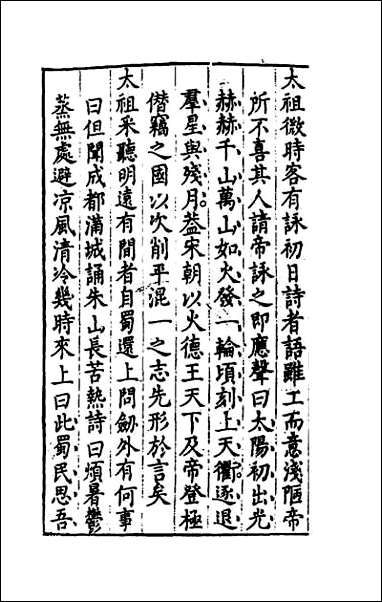 太祖微時客有詠初日詩者語雖工而意淺陋帝
所不喜其人請帝詠之即應聲曰太陽初出光
赫赫千山萬山如火發一輪頃刻上天衢逐退
羣星與殘月葢宋朝以火德王天下及帝登極
僭竊之國以次削平混一之志先形於言矣
太祖采聽明遠有間者自蜀還上問劒外有何事
曰但聞成都滿城誦朱山長苦熱詩曰煩暑鬱
蒸無處避凉風清冷幾時來上曰此蜀民思吾